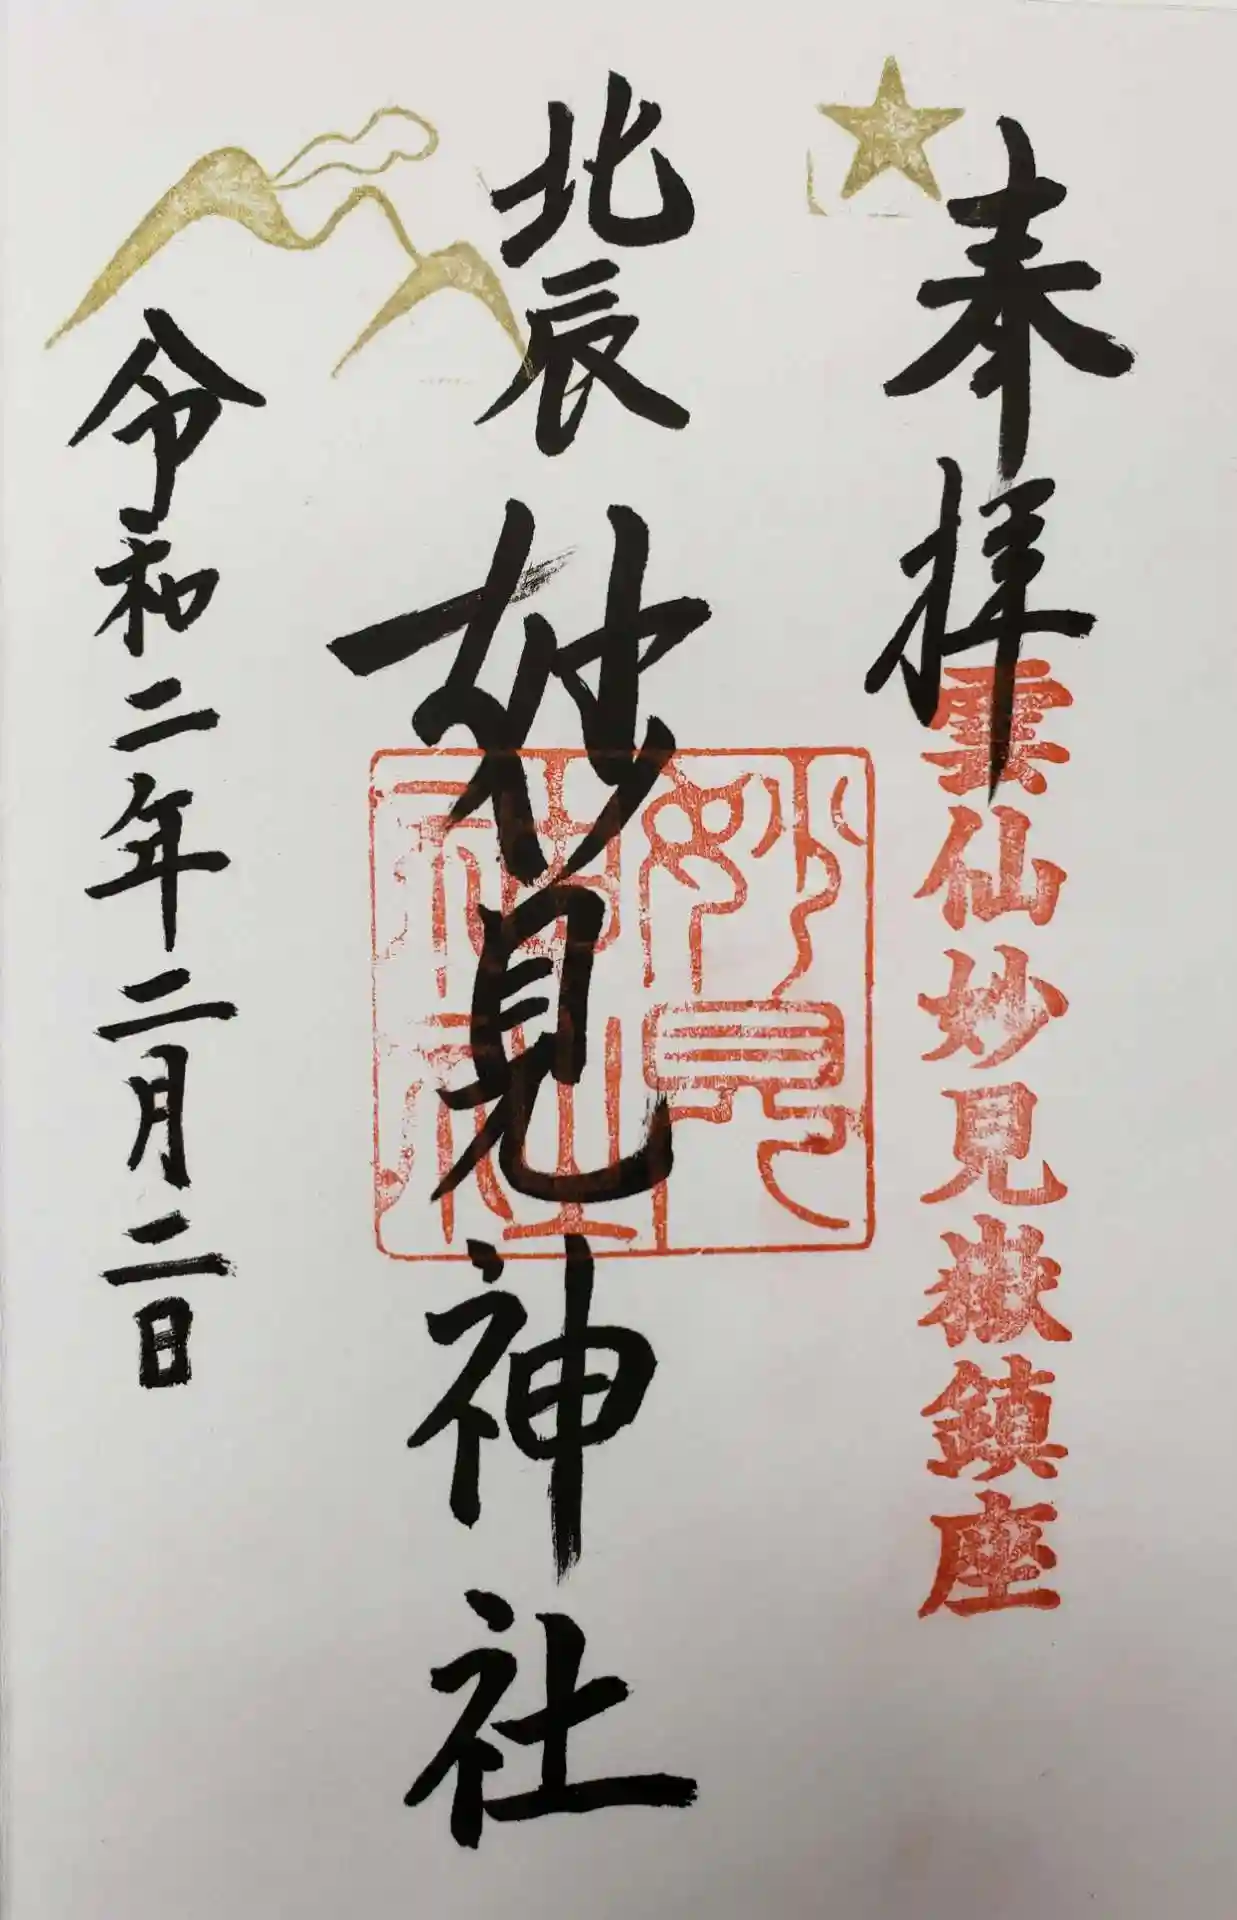 奉拝
雲仙妙見嶽鎮座
北辰妙見神社
妙見
神社
令和二年二月二日